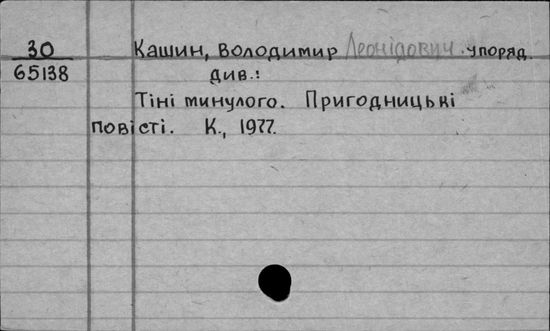 30 Кашин, Володимир Леонідович упоряд.
65138 див.:
Тіні минулого. Пригодницькі
повісті. К., 1977.